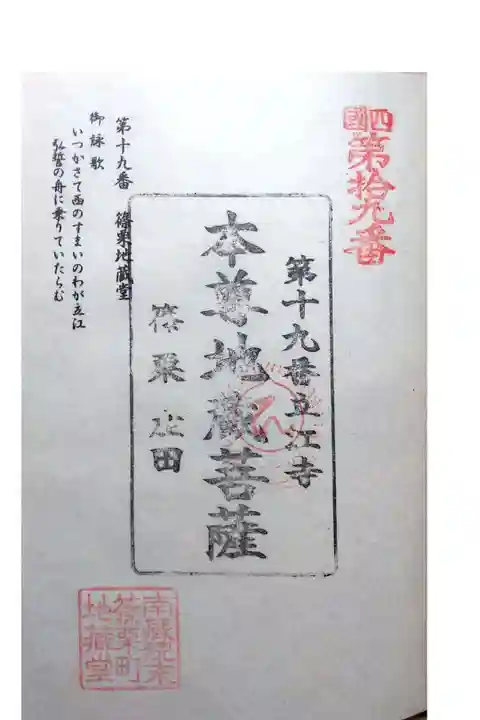 四國
第拾九番
第十九番立江寺
本尊地蔵菩薩
篠栗
田
第十九番 篠栗地蔵堂
御詠歌
いつかさて西のすまいのわが立江
弘誓の舟に乗りていたらむ
篠栗町
地蔵堂